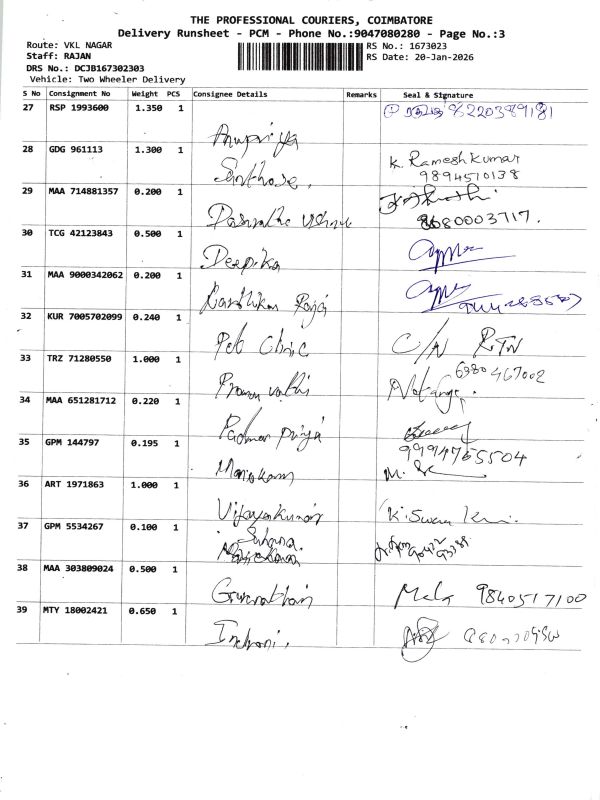 THE PROFESSIONAL COURIERS, COIMBATORE
Delivery Runsheet - PCM - Phone No.:9047080280 - Page No.:3
Route: VKL NAGAR RS No.: 1673023
Staff: RAJAN RS Date: 20-Jan-2026
DRS No.: DCJB167302303
Vehicle: Two Wheeler Delivery
S No Consignment No Weight PCS Consignee Details Remarks Seal & Signature
27 RSP 1993600 1.350 1 Anupriya
28 GDG 961113 1.300 1 Santhose. K. Rameshkumar
9894510138
29 MAA 714881357 0.200 1 8680003717.
30 TCG 42123843 0.500 1 Deepika
31 MAA 9000342062 0.200 1 Karthikan Raja
32 KUR 7005702099 0.240 1 Pet Clinic C/N RTN
33 TRZ 71280550 1.000 1 6980467002
34 MAA 651281712 0.220 1 Padma priya
35 GPM 144797 0.195 1 Manickam 9994765504
36 ART 1971863 1.000 1 Vijayakumar
37 GPM 5534267 0.100 1 Suhana
38 MAA 303809024 0.500 1 Mala 9840517100
39 MTY 18002421 0.650 1 Indrani.